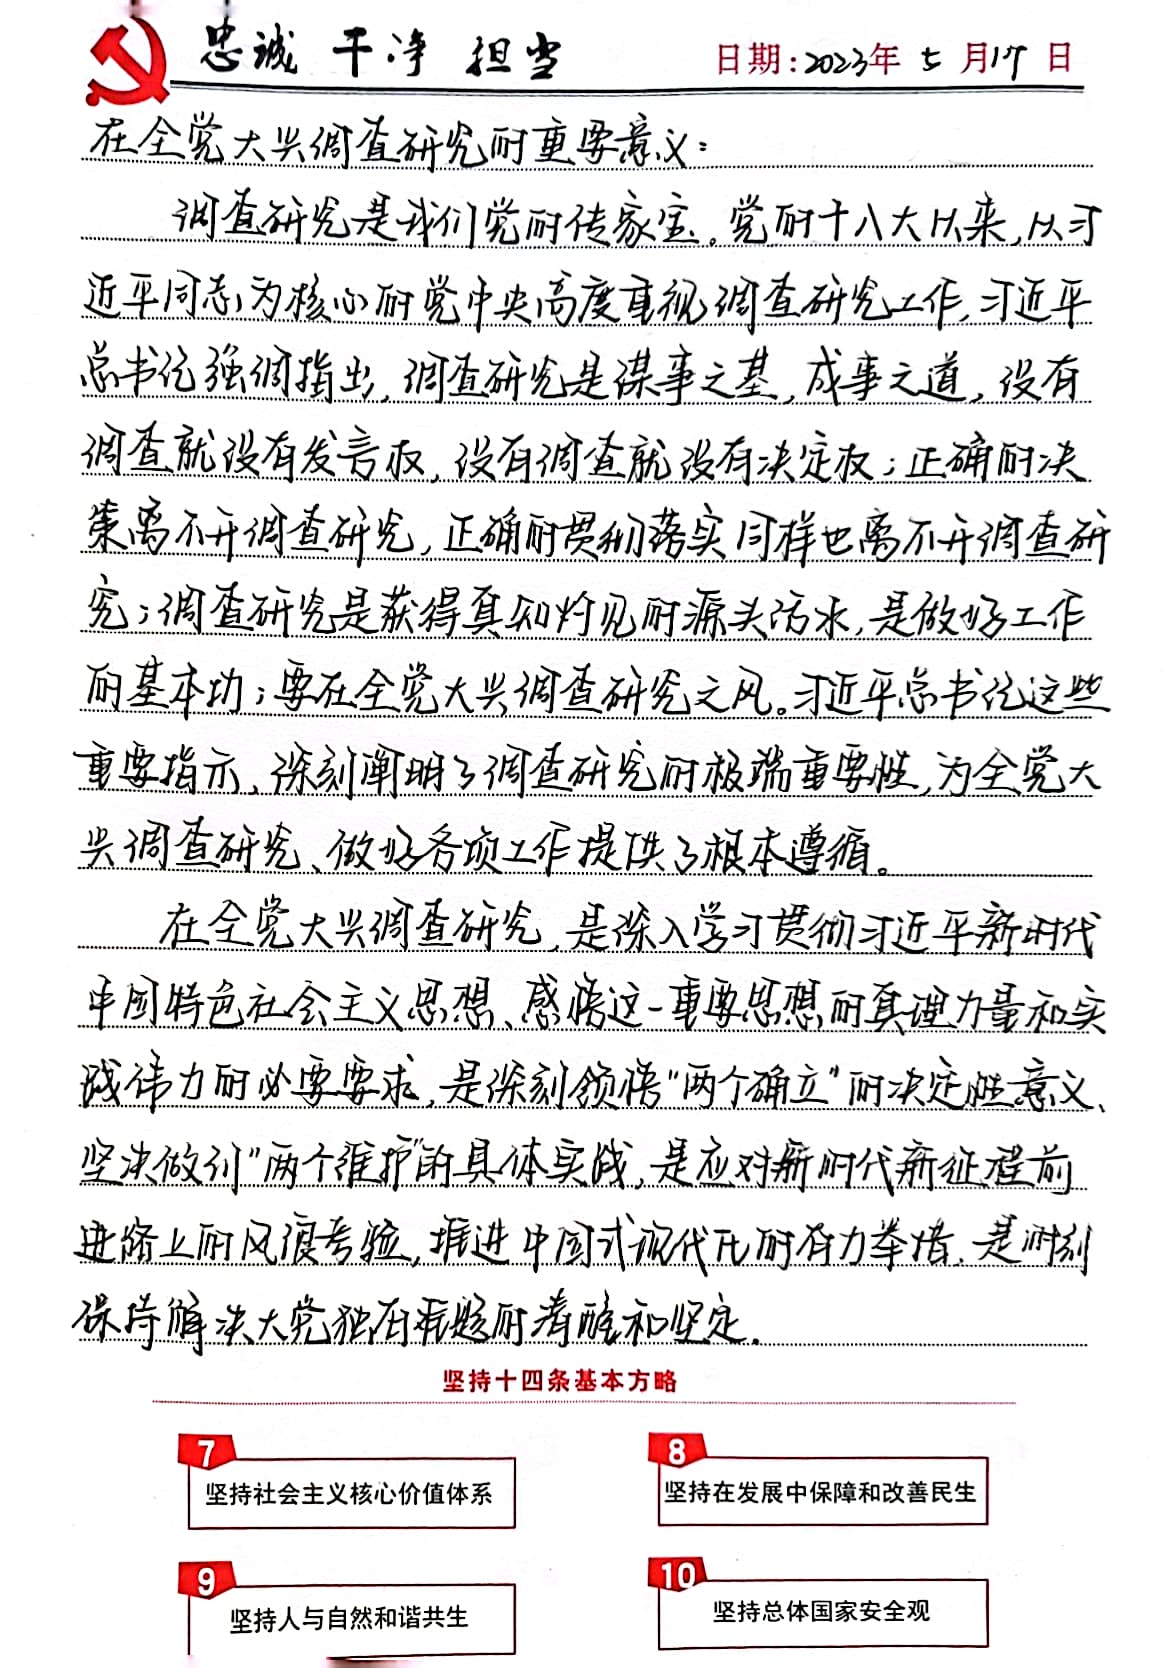 忠诚 干净 担当
日期:2023年 5 月17 日
在全党大兴调查研究的重要意义:
调查研究是我们党的传家宝。党的十八大以来,以习
近平同志为核心的党中央高度重视调查研究工作,习近平
总书记强调指出,调查研究是谋事之基,成事之道,没有
调查就没有发言权,没有调查就没有决定权;正确的决
策离不开调查研究,正确的贯彻落实同样也离不开调查研
究;调查研究是获得真知灼见的源头活水,是做好工作
的基本功;要在全党大兴调查研究之风。习近平总书记这些
重要指示,深刻阐明了调查研究的极端重要性,为全党大
兴调查研究、做好各项工作提供了根本遵循。
在全党大兴调查研究,是深入学习贯彻习近平新时代
中国特色社会主义思想、感悟这一重要思想的真理力量和实
践伟力的必要要求,是深刻领悟"两个确立"的决定性意义、
坚决做到"两个维护"的具体实践,是应对新时代新征程前
进路上的风浪考验,推进中国式现代化的有力举措,是时刻
保持解决大党独有难题的清醒和坚定.
坚持十四条基本方略
7
坚持社会主义核心价值体系
8
坚持在发展中保障和改善民生
9
坚持人与自然和谐共生
10
坚持总体国家安全观